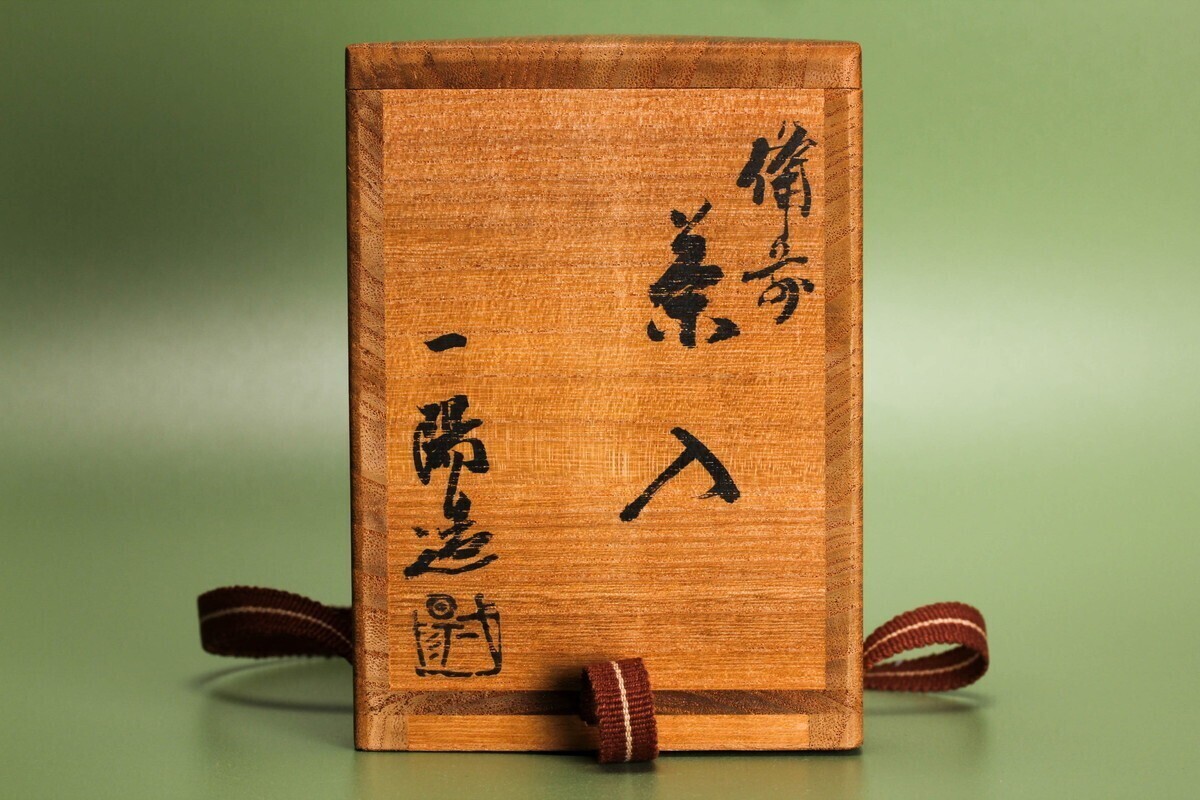 備前
茶入
一陽造